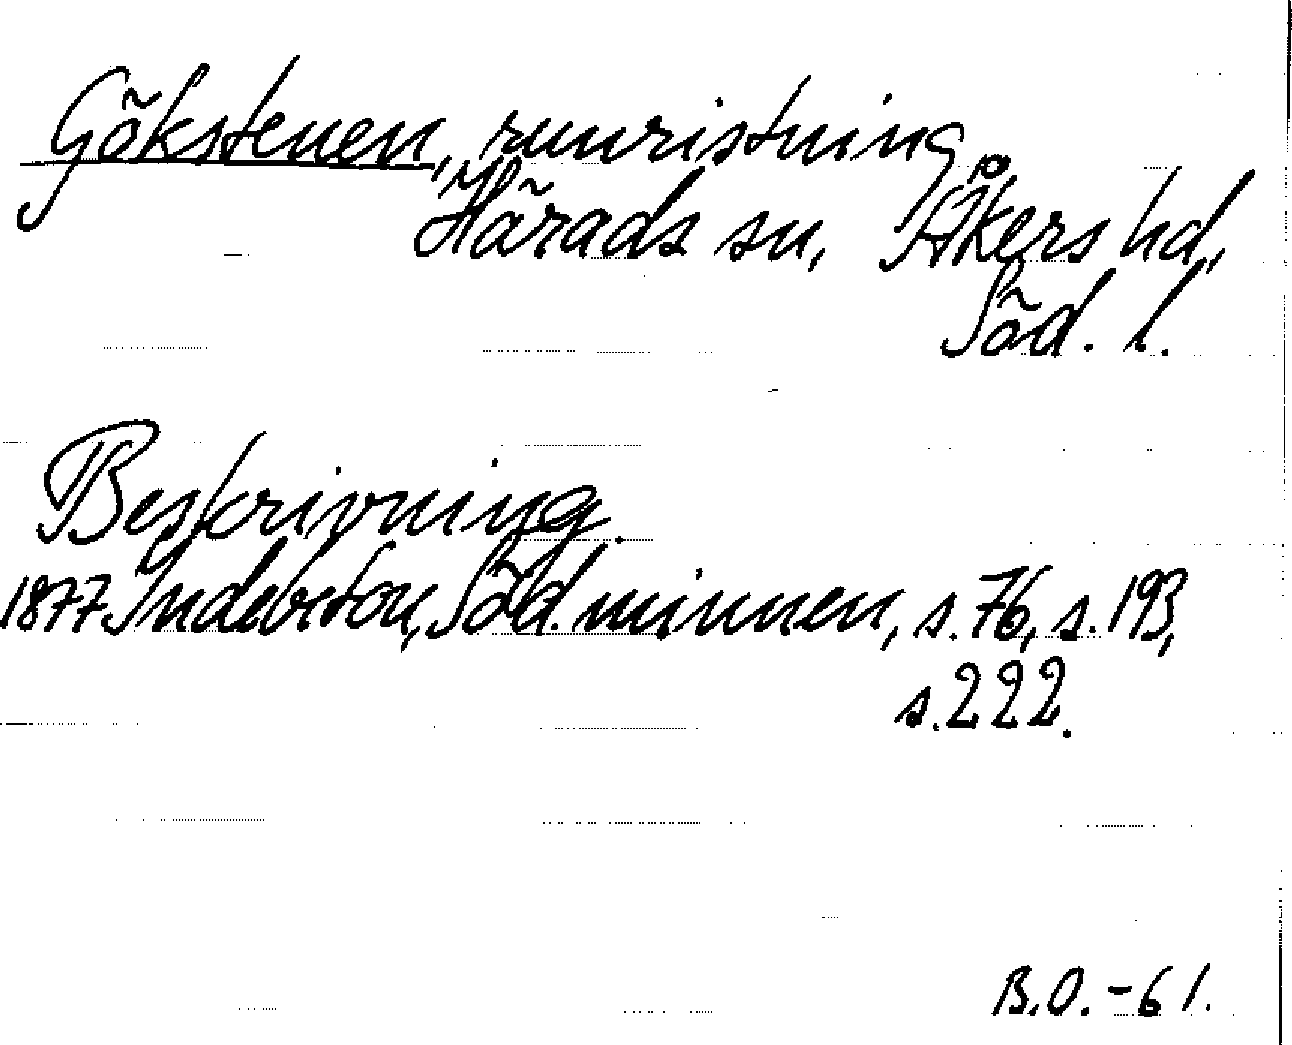 Gökstenen, runristning
Härads sn, Åkers hd,
Söd. l.
Beskrivning.
1877. Indebetou, Söd. minnen, s. 76, s. 193,
s. 222.
B.O. -61.